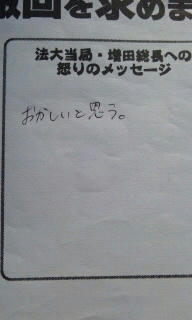 撤回を求めま
法大当局・増田総長への
怒りのメッセージ
おかしいと思う。